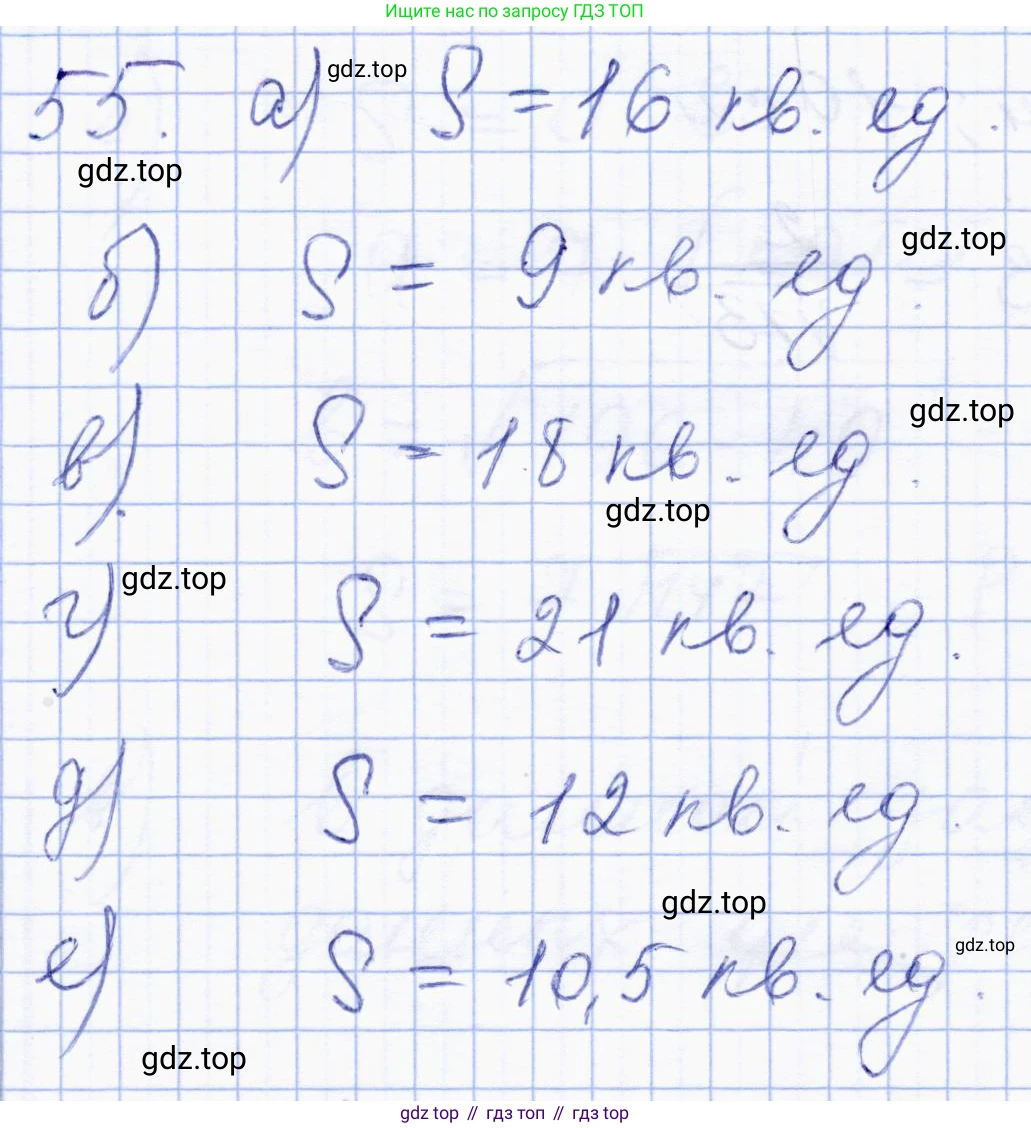 Ищите нас по запросу ГДЗ ТОП
55. а) gdz.top S = 16 кв. ед.
gdz.top
б) S = 9 кв. ед.
gdz.top
в) S = 18 кв. ед.
gdz.top
gdz.top
г) gdz.top S = 21 кв. ед.
д) S = 12 кв. ед.
gdz.top
е) S = 10,5 кв. ед.
gdz.top
gdz.top
gdz top // гдз топ // гдз top